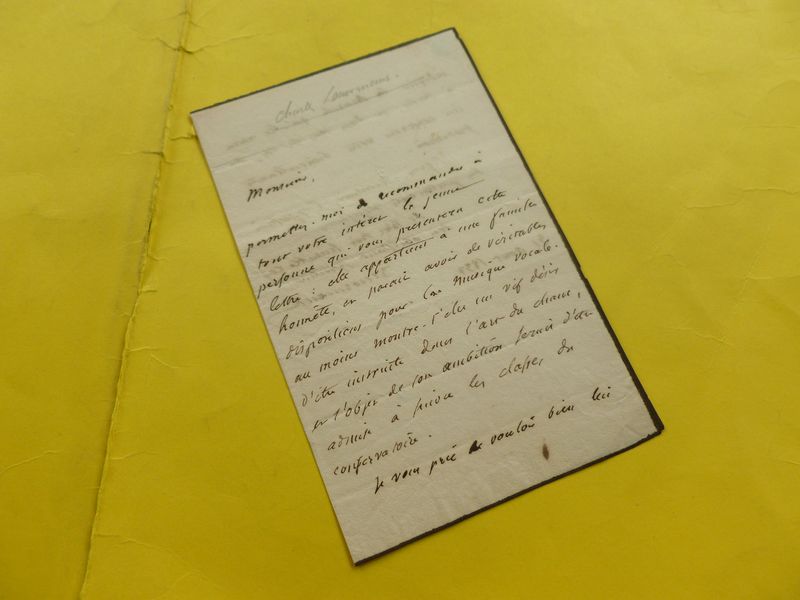 Monsieur,
permettez-moi de recommander à
tout votre intérêt la jeune
personne qui vous présentera cette
lettre : elle appartient à une famille
honnête, et parait avoir de véritables
dispositions pour la musique vocale.
au moins montre-t'elle un vif désir
d'être instruite dans l'art du chant,
et l'objet de son ambition serait d'être
admise à suivre les classes du
conservatoire.
Je vous prie de vouloir bien lui